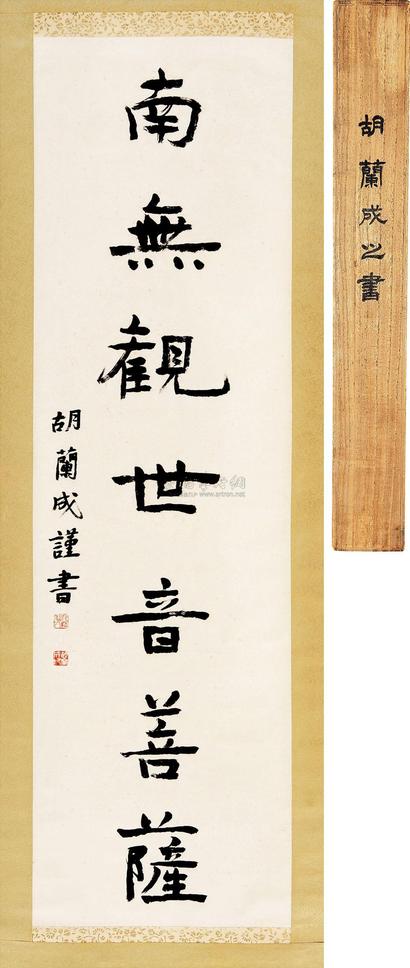 南無観世音菩薩
胡蘭成謹書
胡蘭成之書
www.artron.net